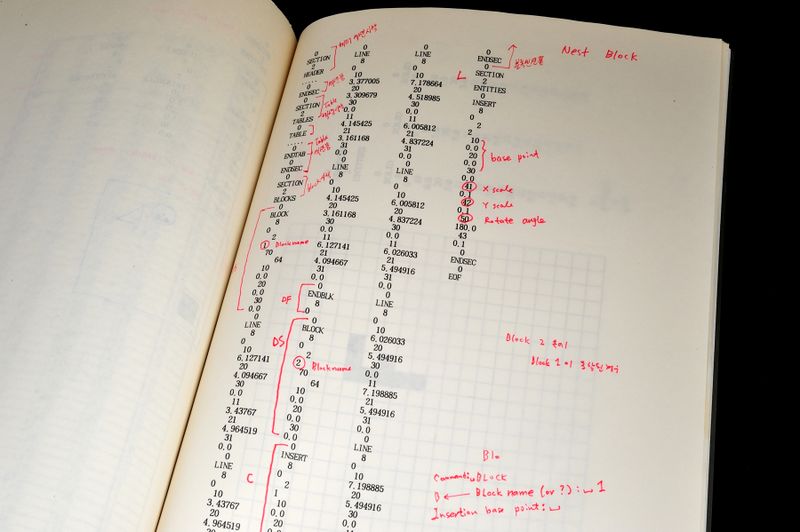 0
SECTION
2
HEADER
.....
0
ENDSEC
0
SECTION
2
TABLES
0
TABLE
.....
0
ENDTAB
0
ENDSEC
0
SECTION
2
BLOCKS
0
BLOCK
8
0
2
1 Blockname
70
64
10
0.0
20
0.0
30
0.0
0
LINE
8
0
10
6.127141
20
4.094667
30
0.0
11
3.43767
21
4.964519
31
0.0
0
LINE
8
0
10
3.43767
20
4.964519
Table
Table
0
LINE
8
0
10
3.377005
20
3.309679
30
0.0
11
4.145425
21
3.161168
31
0.0
0
LINE
8
0
10
4.145425
20
3.161168
30
0.0
11
6.127141
21
4.094667
31
0.0
0
DF
ENDBLK
8
0
0
DS
BLOCK
8
0
2
2 Blockname
70
64
10
0.0
20
0.0
30
0.0
0
C
INSERT
8
0
2
1
10
0.0
20
0.0
0
LINE
8
0
10
7.178664
20
4.518985
30
0.0
11
6.005812
21
4.837224
31
0.0
0
LINE
8
0
10
6.005812
20
4.837224
30
0.0
11
6.026033
21
5.494916
31
0.0
0
LINE
8
0
10
6.026033
20
5.494916
30
0.0
11
7.198885
21
5.494916
31
0.0
0
LINE
8
0
10
7.198885
20
5.494916
30
0.0
Nest Block
0
ENDSEC
0
SECTION
2
ENTITIES
0
INSERT
8
0
2
2
10
0.0
20
0.0
30
0.0
base point
41 X scale
0.1
42 Y scale
0.1
50 Rotate angle
180.0
43
0.1
0
ENDSEC
0
EOF
Block 2
Block 1
Blo
BLOCK
Block name (or ?): 1
Insertion base point: